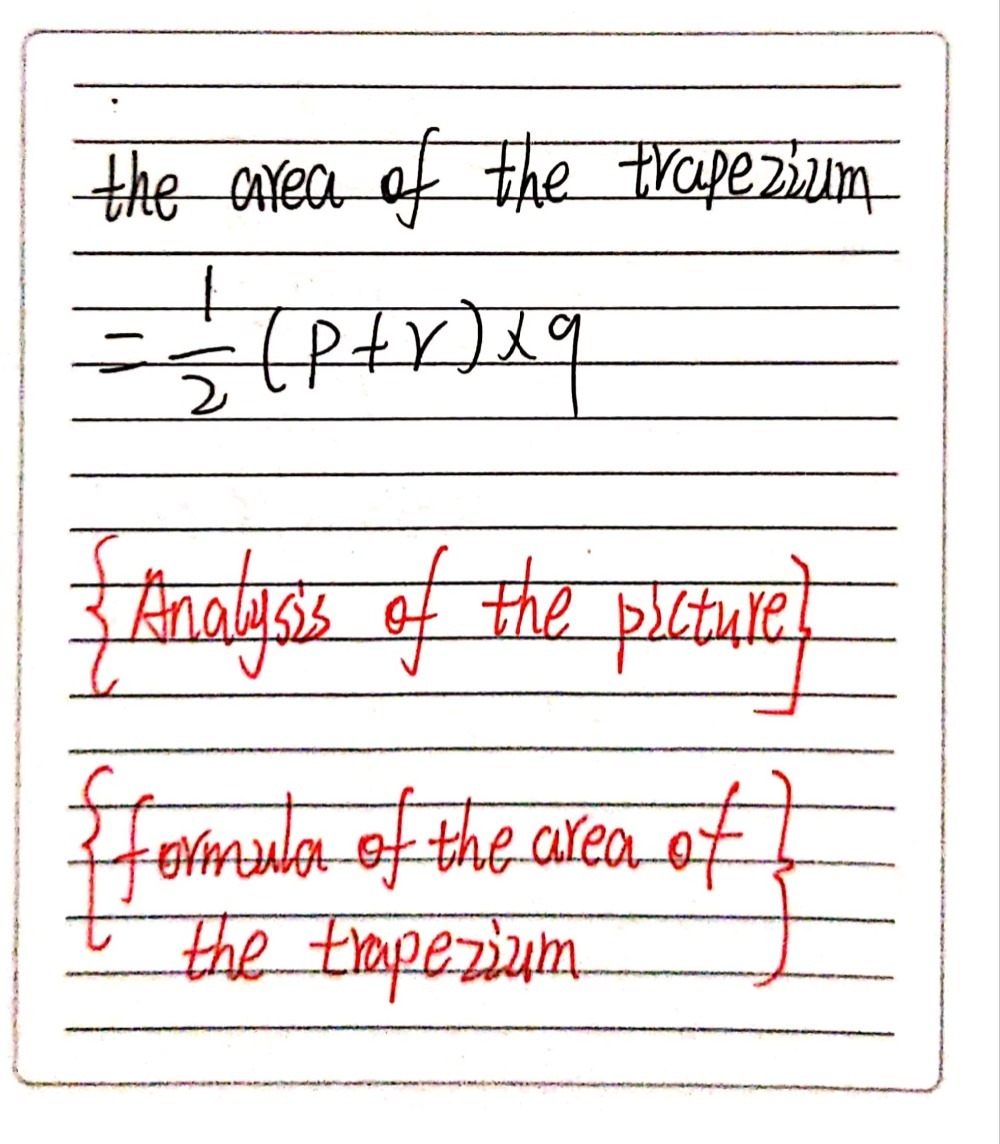 the area of the trapezium
= 1/2 (p+r)×q
{Analysis of the picture}
{formula of the area of
the trapezium}